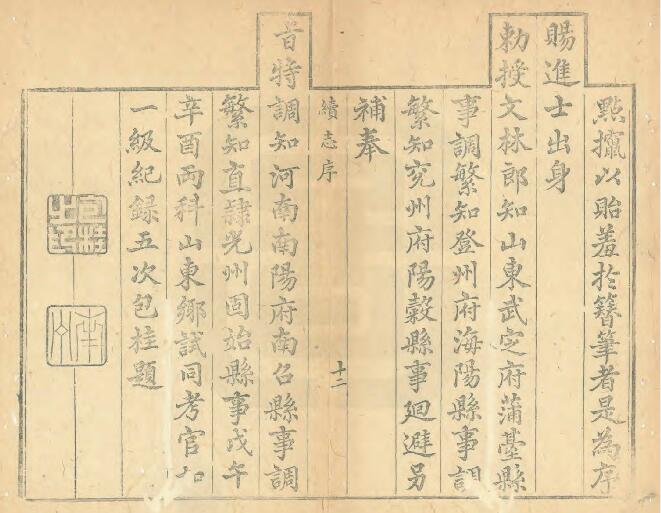 點攛以貽羞於簪筆者是為序
賜進士出身
勅授文林郎知山東武定府蒲臺縣
事調繁知登州府海陽縣事調
繁知兖州府陽穀縣事廻避另
補奉
續志序
十二
旨特調知河南南陽府南召縣事調
繁知直隷光州固始縣事戊午
辛酉两科山東鄉試同考官加
一級紀録五次包桂題